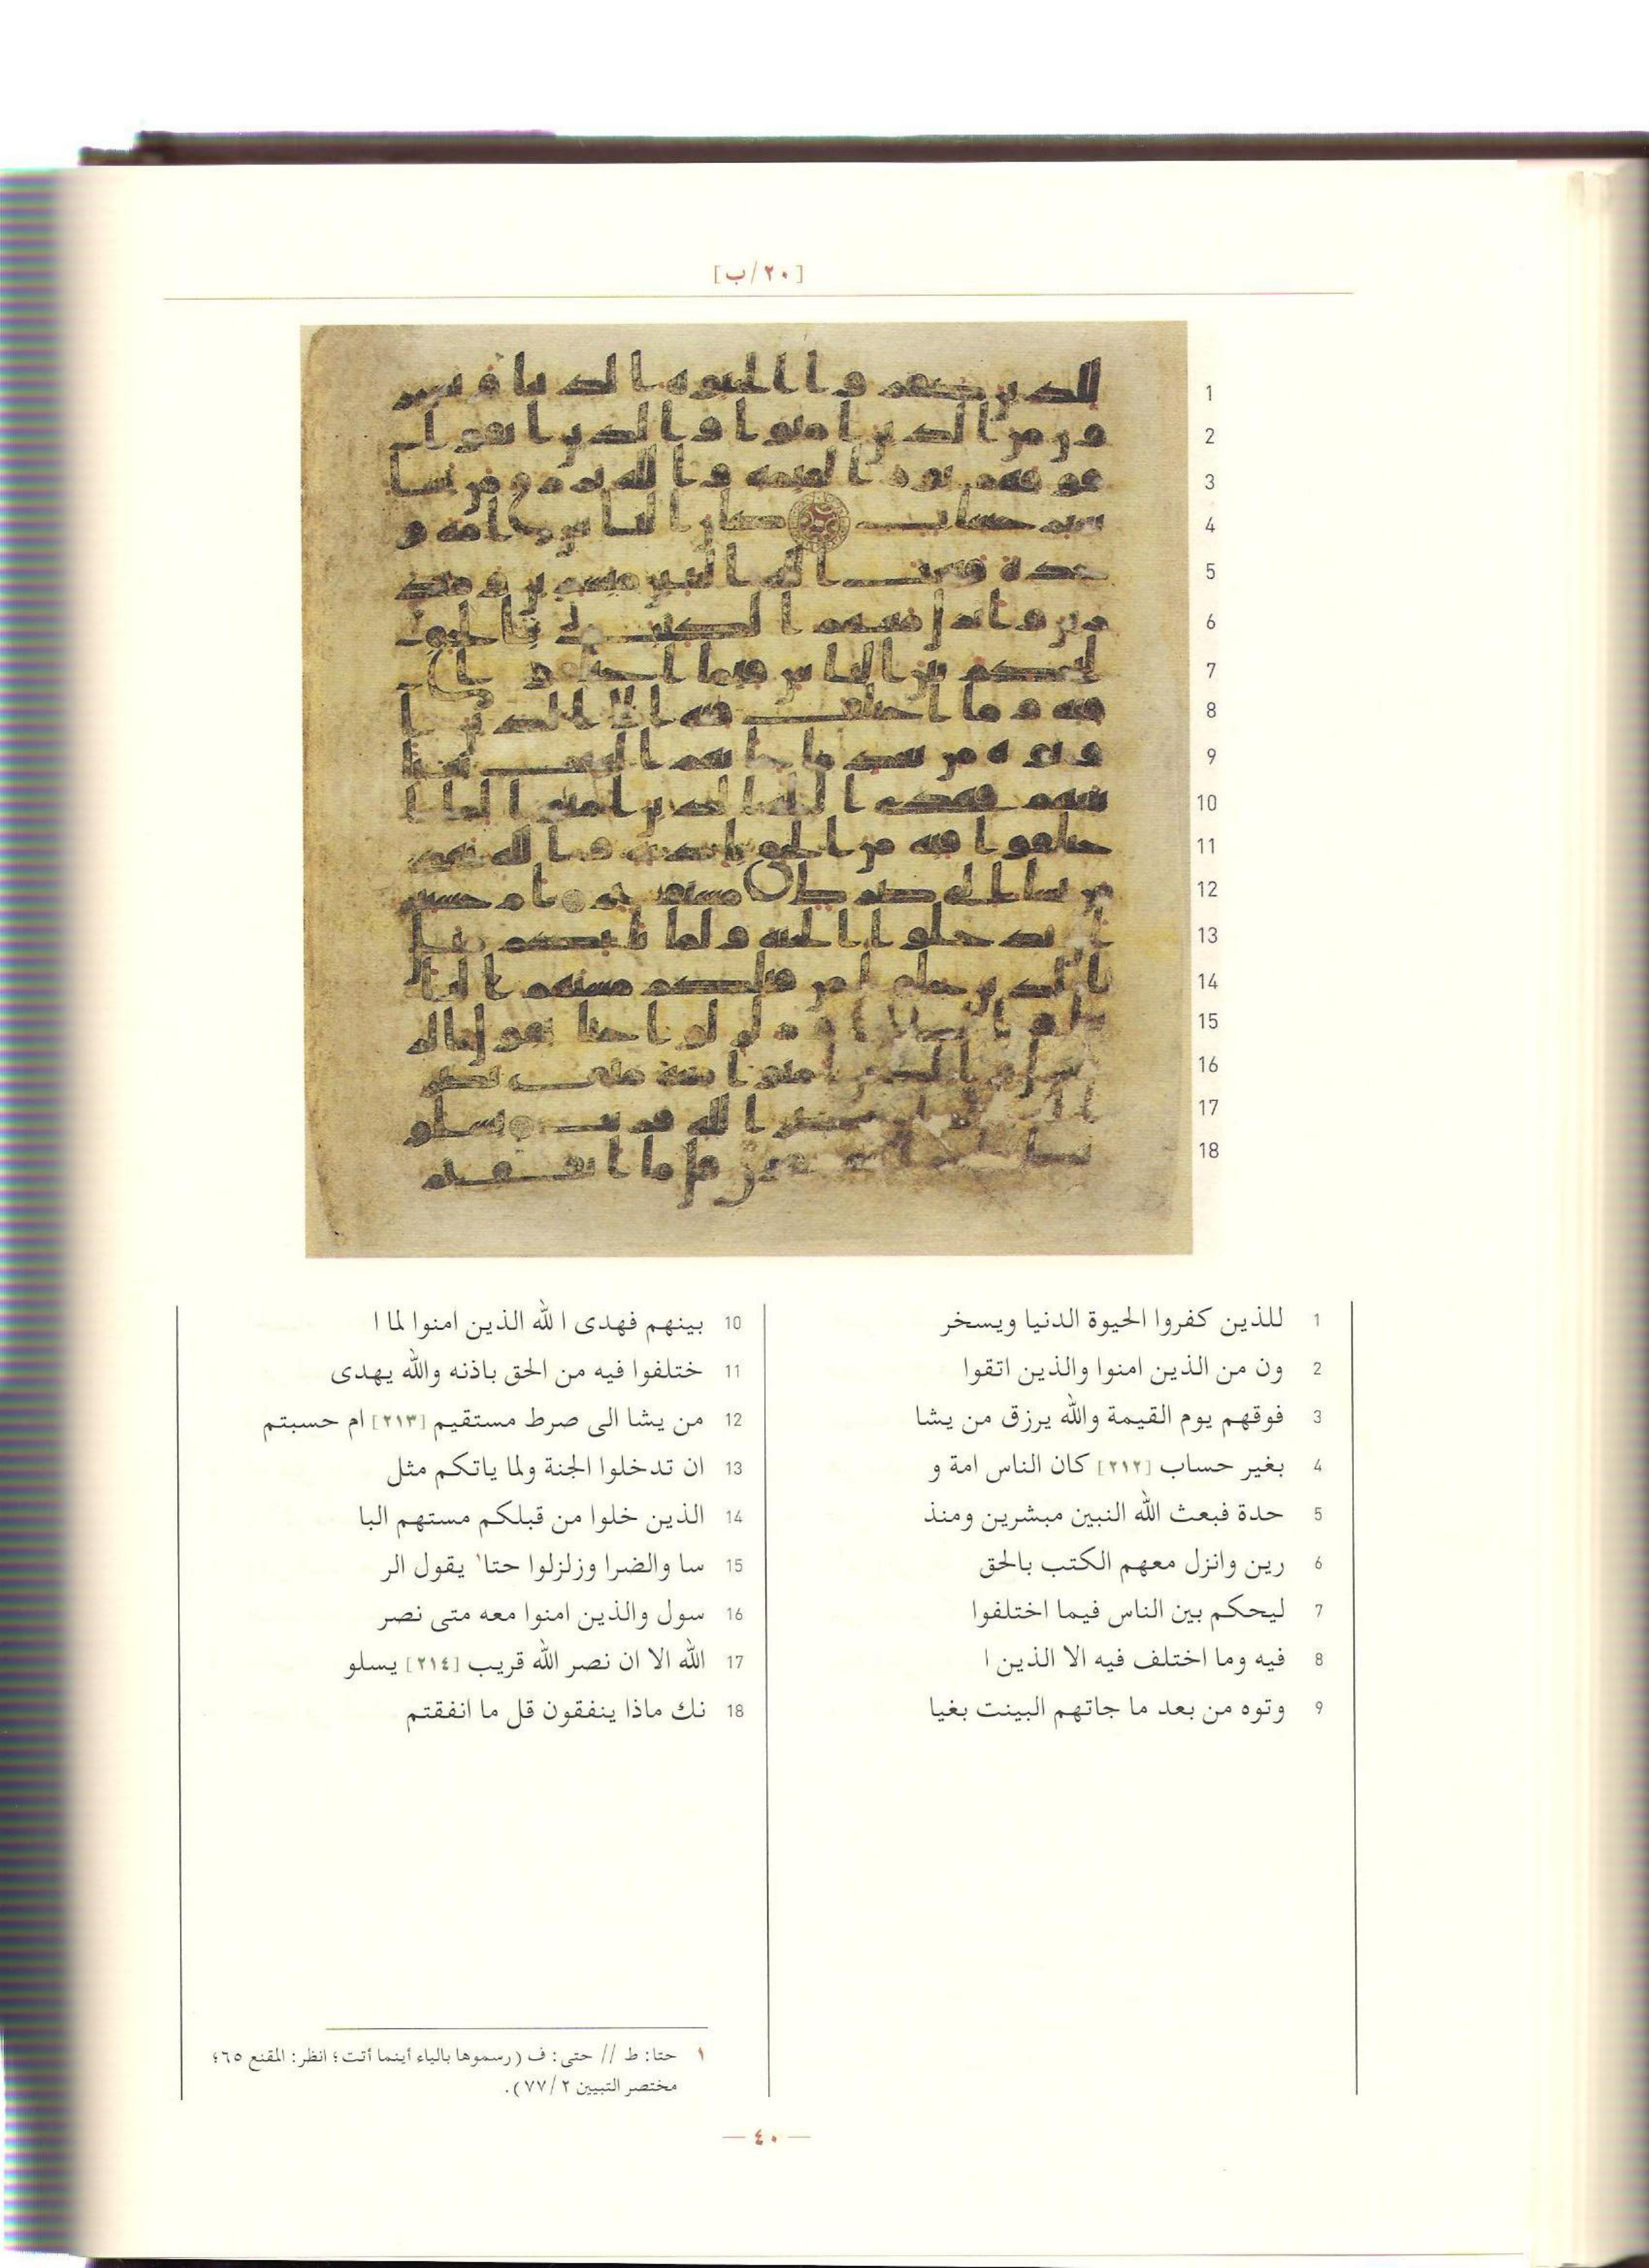 [٢٠/ب]
1 للذين كفروا الحيوة الدنيا ويسخر
2 ون من الذين امنوا والذين اتقوا
3 فوقهم يوم القيمة والله يرزق من يشا
4 بغير حساب [٢١٢] كان الناس امة و
5 حدة فبعث الله النبين مبشرين ومنذ
6 رين وانزل معهم الكتب بالحق
7 ليحكم بين الناس فيما اختلفوا
8 فيه وما اختلف فيه الا الذين ا
9 وتوه من بعد ما جاتهم البينت بغيا
10 بينهم فهدى ا لله الذين امنوا لما ا
11 ختلفوا فيه من الحق باذنه والله يهدى
12 من يشا الى صرط مستقيم [٢١٣] ام حسبتم
13 ان تدخلوا الجنة ولما ياتكم مثل
14 الذين خلوا من قبلكم مستهم البا
15 سا والضرا وزلزلوا حتا١ يقول الر
16 سول والذين امنوا معه متى نصر
17 الله الا ان نصر الله قريب [٢١٤] يسلو
18 نك ماذا ينفقون قل ما انفقتم
١ حتا: ط // حتى: ف (رسموها بالياء أينما أتت؛ انظر: المقنع ٦٥؛
مختصر التبيين ٢/ ٧٧).
— ٤٠ —